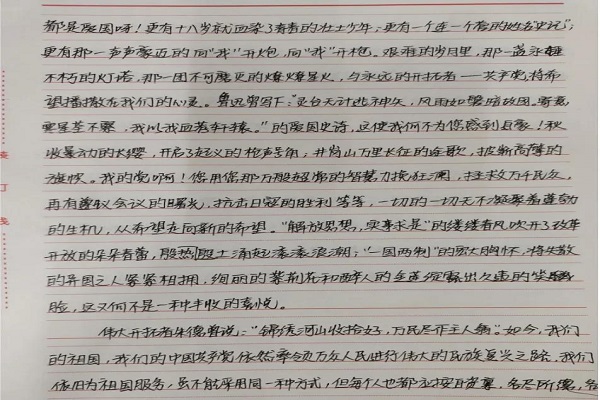 都是爱国呀！更有十八岁就血染了青春的壮士少年；更有一个连一个营的姓名"史记"；
更有那一声声豪迈的"向'我'开炮，向'我'开炮。艰难的岁月里，那一盏永垂
不朽的灯塔，那一团不可磨灭的燎燎星火，与永远的开拓者——共产党，将希
望播撒在我们的心灵。鲁迅曾写下："灵台无计逃神矢，风雨如磐暗故园。寄意
寒星荃不察，我以我血荐轩辕。"的爱国史诗，这使我们何不为您感到自豪！秋
收暴动的大缨，开启了起义的枪声号角；井岗山万里长征的连歌，披靡高擎的
旗帜。我的党啊！您用您那万般超常的智慧力挽狂澜，拯救万千民众，
再有遵议会议的曙光，抗击日寇的胜利等等，一切的一切无不凝聚着蓬勃
的生机，从希望走向新的希望。"解放思想，实事求是"的缕缕春风吹开了改革
开放的朵朵春蕾，殷热国土涌起滚滚浪潮；"一国两制"的宏大胸怀，将失散
的异国之人紧紧相拥，绚丽的紫荆花和醉人的 绽露出久违的笑
脸，这又何不是一种丰收的喜悦。
伟大开拓者朱德曾说："锦绣河山收拾好，万民尽作主人翁"。如今，我们
的祖国，我们的中国共产党依然率领万众人民进行伟大的民族复兴之路，我们
依旧为祖国服务，虽不能采用同一种方式，但每个人也都应
装
订
线